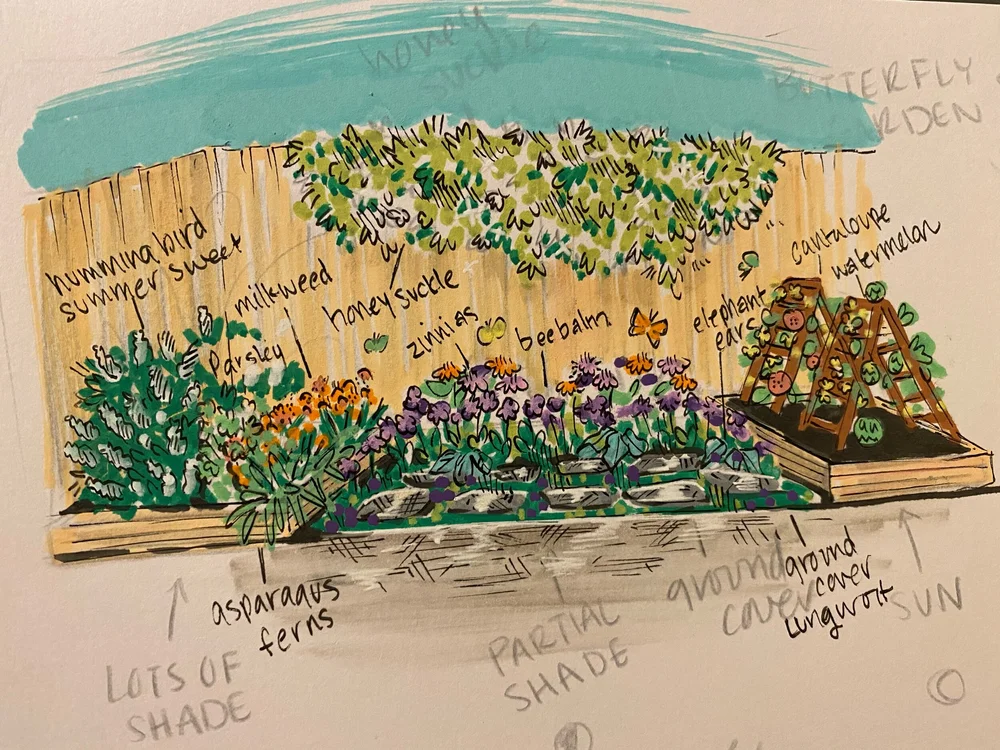 honey
suckle
BUTTERFLY
GARDEN
hummingbird
summer sweet
milkweed
Parsley
honeysuckle
zinnias
beebalm
elephant
ears
cantaloupe
watermelon
asparagus
ferns
ground
cover
ground
cover
lungwort
LOTS OF
SHADE
PARTIAL
SHADE
SUN